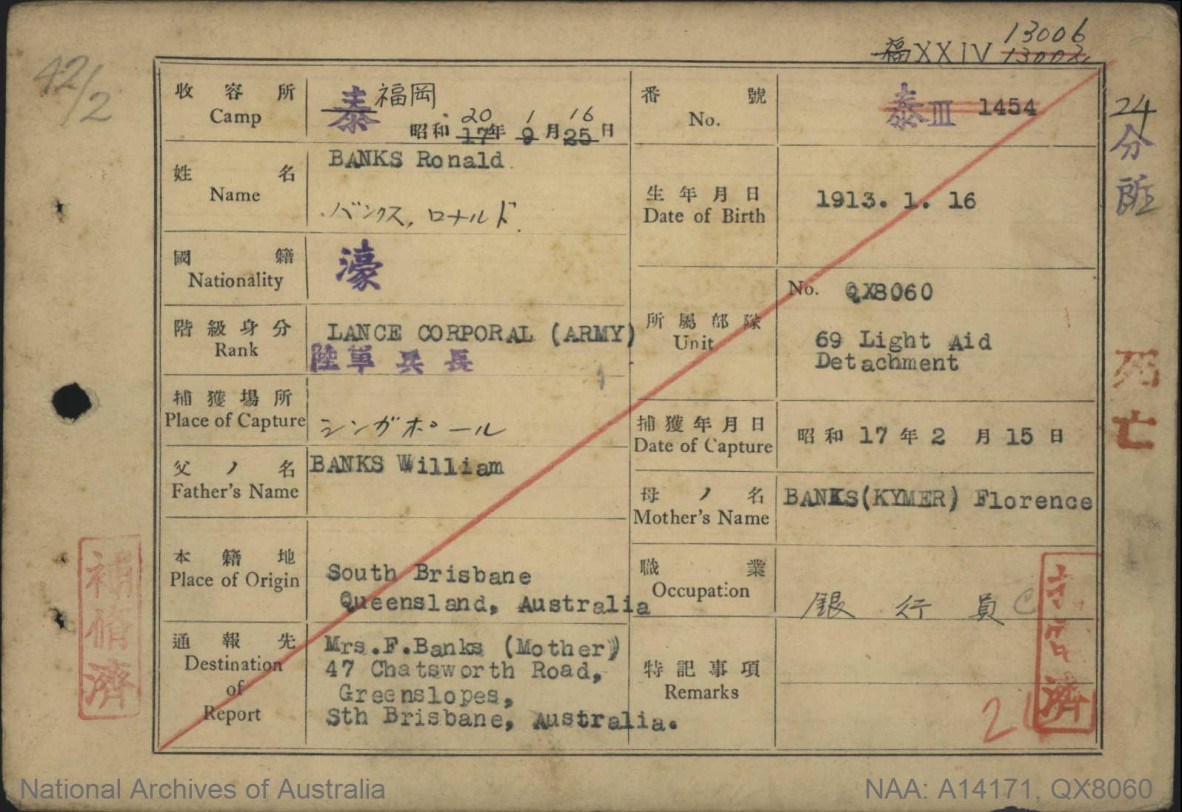 42/2
福XXIV 13006
13002
收容所
Camp
泰 福岡
20 1 16
昭和17年9月25日
番號
No.
泰III 1454
24
分所
姓名
Name
BANKS Ronald
バンクス, ロナルド
生年月日
Date of Birth
1913. 1. 16
國籍
Nationality
濠
階級身分
Rank
LANCE CORPORAL (ARMY)
陸軍兵長
所屬部隊
Unit
No. QX8060
69 Light Aid
Detachment
死亡
捕獲場所
Place of Capture
シンガポール
捕獲年月日
Date of Capture
昭和17年2月15日
父ノ名
Father's Name
BANKS William
母ノ名
Mother's Name
BANKS(KYMER) Florence
本籍地
Place of Origin
South Brisbane
Queensland, Australia
職業
Occupation
銀行員
通報先
Destination
of
Report
Mrs.F.Banks (Mother)
47 Chatsworth Road,
Greenslopes,
Sth Brisbane, Australia.
特記事項
Remarks
2
National Archives of Australia
NAA: A14171, QX8060